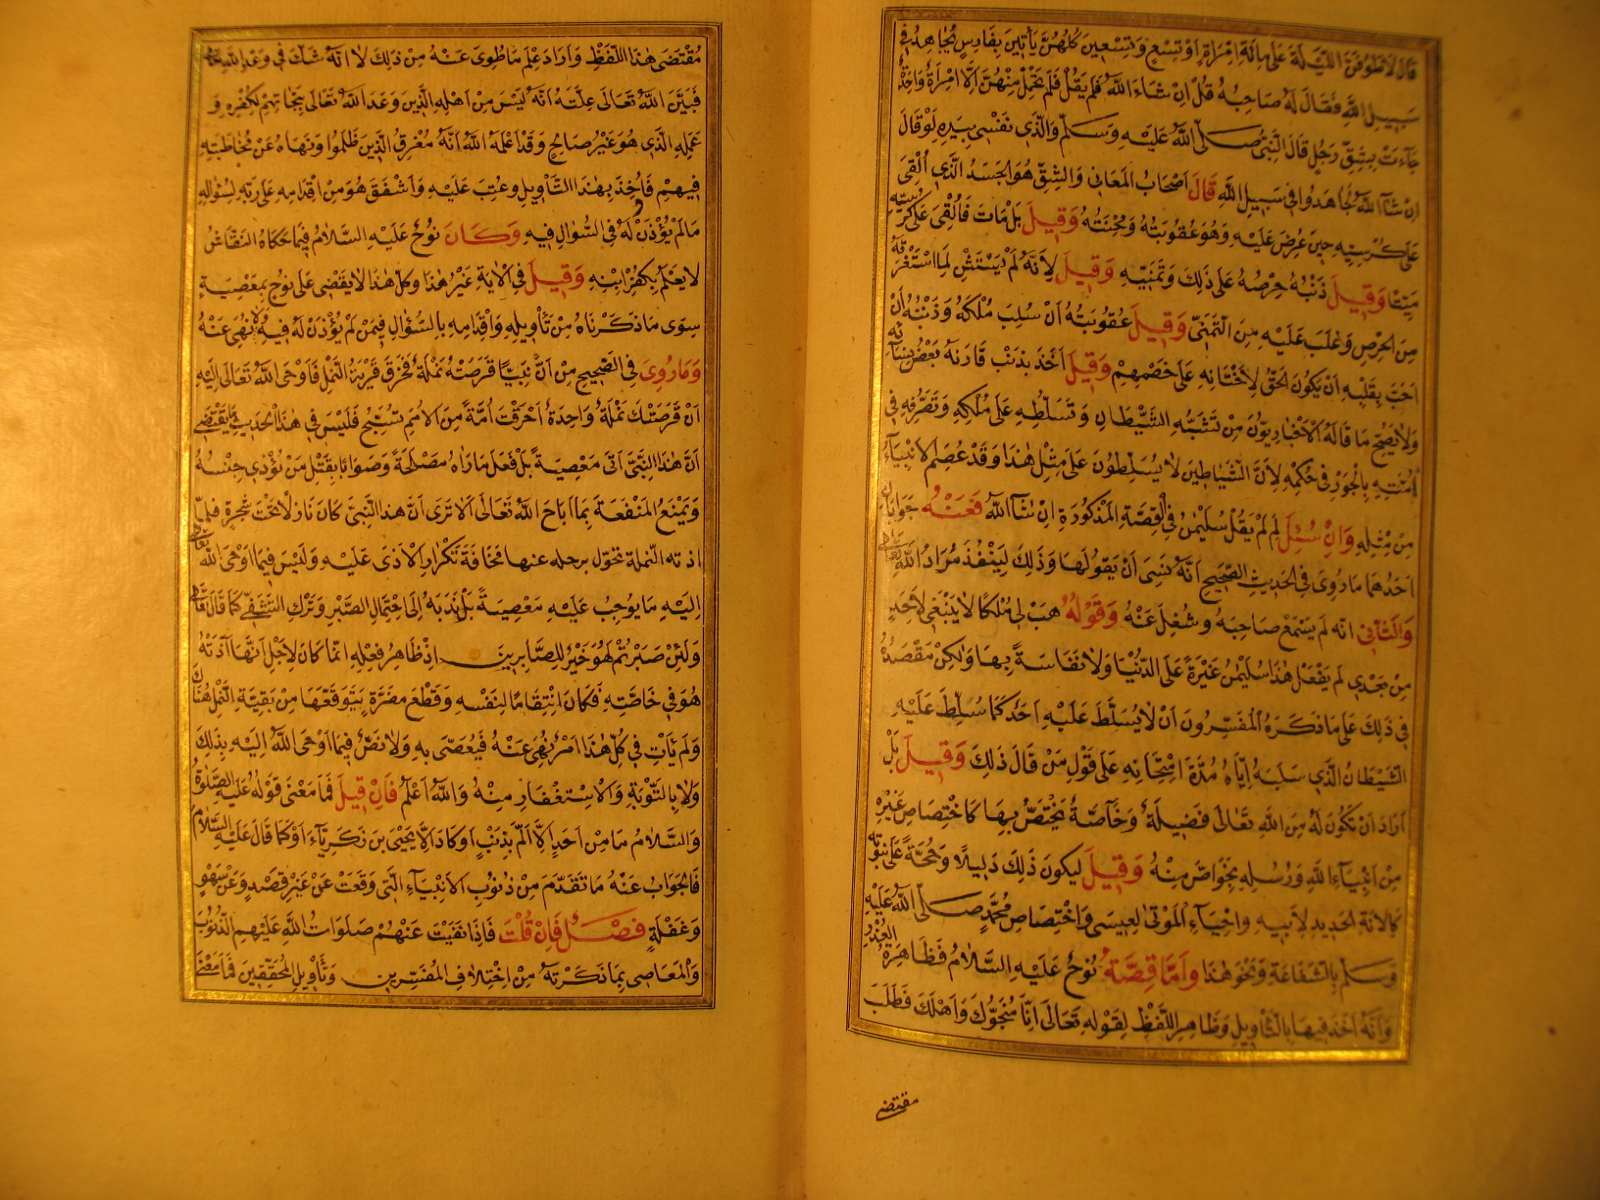 قَالَ لَأَطُوفَنَّ اللَّيْلَةَ عَلَى مِائَةِ امْرَأَةٍ أَوْ تِسْعٍ وَتِسْعِينَ كُلُّهُنَّ يَأْتِينَ بِفَارِسٍ يُجَاهِدُ فِي
سَبِيلِ اللَّهِ فَقَالَ لَهُ صَاحِبُهُ قُلْ إِنْ شَاءَ اللَّهُ فَلَمْ يَقُلْ فَلَمْ تَحْمِلْ مِنْهُنَّ إِلَّا امْرَأَةٌ وَاحِدَةٌ
جَاءَتْ بِشِقِّ رَجُلٍ قَالَ النَّبِيُّ صَلَّى اللَّهُ عَلَيْهِ وَسَلَّمَ وَالَّذِي نَفْسِي بِيَدِهِ لَوْ قَالَ
إِنْ شَاءَ اللَّهُ لَجَاهَدُوا فِي سَبِيلِ اللَّهِ قَالَ أَصْحَابُ الْمَعَانِي وَالشِّقُّ هُوَ الْجَسَدُ الَّذِي أُلْقِيَ
عَلَى كُرْسِيِّهِ حِينَ عُرِضَ عَلَيْهِ وَهُوَ عُقُوبَتُهُ وَمِحْنَتُهُ وَقِيلَ بَلْ مَاتَ فَأُلْقِيَ عَلَى كُرْسِيِّهِ
مَيِّتًا وَقِيلَ ذَنْبُهُ حِرْصُهُ عَلَى ذَلِكَ وَتَمَنِّيهِ وَقِيلَ لِأَنَّهُ لَمْ يَسْتَثْنِ لِمَا اسْتَغْرَقَهُ
مِنَ الْحِرْصِ وَغَلَبَ عَلَيْهِ مِنَ التَّمَنِّي وَقِيلَ عُقُوبَتُهُ أَنْ سُلِبَ مُلْكَهُ وَذَنْبُهُ أَنْ
أَحَبَّ بِقَلْبِهِ أَنْ يَكُونَ الْحَقُّ لِأَخْتَانِهِ عَلَى خَصْمِهِمْ وَقِيلَ أُخِذَ بِذَنْبٍ قَارَفَهُ بَعْضُ نِسَائِهِ
وَلَا يَصِحُّ مَا قَالَهُ الْأَخْبَارِيُّونَ مِنْ تَشَبُّهِ الشَّيْطَانِ وَتَسَلُّطِهِ عَلَى مُلْكِهِ وَتَصَرُّفِهِ فِي
أُمَّتِهِ بِالْجَوْرِ فِي حُكْمِهِ لِأَنَّ الشَّيَاطِينَ لَا يُسَلَّطُونَ عَلَى مِثْلِ هَذَا وَقَدْ عُصِمَ الْأَنْبِيَاءُ
مِنْ مِثْلِهِ وَإِنْ سُئِلَ لِمَ لَمْ يَقُلْ سُلَيْمَنُ فِي الْقِصَّةِ الْمَذْكُورَةِ إِنْ شَاءَ اللَّهُ فَعَنْهُ جَوَابَانِ
أَحَدُهُمَا مَا رُوِيَ فِي الْحَدِيثِ الصَّحِيحِ أَنَّهُ نَسِيَ أَنْ يَقُولَهَا وَذَلِكَ لِيَنْفُذَ مُرَادُ اللَّهِ تَعَالَى
وَالثَّانِي أَنَّهُ لَمْ يَسْمَعْ صَاحِبَهُ وَشُغِلَ عَنْهُ وَقَوْلُهُ هَبْ لِي مُلْكًا لَا يَنْبَغِي لِأَحَدٍ
مِنْ بَعْدِي لَمْ يَفْعَلْ هَذَا سُلَيْمَنُ غَيْرَةً عَلَى الدُّنْيَا وَلَا نَفَاسَةً بِهَا وَلَكِنْ مَقْصِدُهُ
فِي ذَلِكَ عَلَى مَا ذَكَرَهُ الْمُفَسِّرُونَ أَنْ لَا يُسَلَّطَ عَلَيْهِ أَحَدٌ كَمَا سُلِّطَ عَلَيْهِ
الشَّيْطَانُ الَّذِي سَلَبَهُ إِيَّاهُ مُدَّةَ امْتِحَانِهِ عَلَى قَوْلِ مَنْ قَالَ ذَلِكَ وَقِيلَ بَلْ
أَرَادَ أَنْ تَكُونَ لَهُ مِنَ اللَّهِ تَعَالَى فَضِيلَةٌ وَخَاصَّةٌ يَخْتَصُّ بِهَا كَاخْتِصَاصِ غَيْرِهِ
مِنْ أَنْبِيَاءِ اللَّهِ وَرُسُلِهِ بِخَوَاصَّ مِنْهُ وَقِيلَ لِيَكُونَ ذَلِكَ دَلِيلًا وَحُجَّةً عَلَى نُبُوَّتِهِ
كَإِلَانَةِ الْحَدِيدِ لِأَبِيهِ وَإِحْيَاءِ الْمَوْتَى لِعِيسَى وَاخْتِصَاصِ مُحَمَّدٍ صَلَّى اللَّهُ عَلَيْهِ
وَسَلَّمَ بِالشَّفَاعَةِ وَنَحْوِ هَذَا وَأَمَّا قِصَّةُ نُوحٍ عَلَيْهِ السَّلَامُ فَظَاهِرَةُ الْعُذْرِ
وَأَنَّهُ أَخَذَ فِيهَا بِالتَّأْوِيلِ وَظَاهِرِ اللَّفْظِ لِقَوْلِهِ تَعَالَى إِنَّا مُنَجُّوكَ وَأَهْلَكَ فَطَلَبَ
مقتضى
مُقْتَضَى هَذَا اللَّفْظِ وَأَرَادَ عِلْمَ مَا طُوِيَ عَنْهُ مِنْ ذَلِكَ لَا أَنَّهُ شَكَّ فِي وَعْدِ اللَّهِ تَعَالَى
فَبَيَّنَ اللَّهُ تَعَالَى عِلَّتَهُ أَنَّهُ لَيْسَ مِنْ أَهْلِهِ الَّذِينَ وَعَدَ اللَّهُ تَعَالَى بِنَجَاتِهِمْ لِكُفْرِهِ وَ
عَمَلِهِ الَّذِي هُوَ غَيْرُ صَالِحٍ وَقَدْ أَعْلَمَهُ اللَّهُ أَنَّهُ مُغْرِقُ الَّذِينَ ظَلَمُوا وَنَهَاهُ عَنْ مُخَاطَبَتِهِ
فِيهِمْ فَأُخِذَ بِهَذَا التَّأْوِيلِ وَعُتِبَ عَلَيْهِ وَأَشْفَقَ هُوَ مِنْ إِقْدَامِهِ عَلَى رَبِّهِ لِسُؤَالِهِ
مَا لَمْ يُؤْذَنْ لَهُ فِي السُّؤَالِ فِيهِ وَكَانَ نُوحٌ عَلَيْهِ السَّلَامُ فِيمَا حَكَاهُ النَّقَّاشُ
لَا يَعْلَمُ بِكُفْرِ ابْنِهِ وَقِيلَ فِي الْآيَةِ غَيْرُ هَذَا وَكُلُّ هَذَا لَا يَقْضِي عَلَى نُوحٍ بِمَعْصِيَةٍ
سِوَى مَا ذَكَرْنَاهُ مِنْ تَأْوِيلِهِ وَإِقْدَامِهِ بِالسُّؤَالِ فِيمَنْ لَمْ يُؤْذَنْ لَهُ فِيهِ وَلَا نُهِيَ عَنْهُ
وَمَا رُوِيَ فِي الصَّحِيحِ مِنْ أَنَّ نَبِيًّا قَرَصَتْهُ نَمْلَةٌ فَحَرَّقَ قَرْيَةَ النَّمْلِ فَأَوْحَى اللَّهُ تَعَالَى إِلَيْهِ
أَنْ قَرَصَتْكَ نَمْلَةٌ وَاحِدَةٌ أَحْرَقْتَ أُمَّةً مِنَ الْأُمَمِ تُسَبِّحُ فَلَيْسَ فِي هَذَا الْحَدِيثِ مَا يَقْتَضِي
أَنَّ هَذَا النَّبِيَّ أَتَى مَعْصِيَةً بَلْ فَعَلَ مَا رَآهُ مَصْلَحَةً وَصَوَابًا بِقَتْلِ مَنْ يُؤْذِي جِنْسُهُ
وَيَمْنَعُ الْمَنْفَعَةَ بِمَا أَبَاحَ اللَّهُ تَعَالَى أَلَا تَرَى أَنَّ هَذَا النَّبِيَّ كَانَ نَازِلًا تَحْتَ شَجَرَةٍ فَلَمَّا
آذته النملة تحوّل برحله عنها مَخَافَةَ تَكْرَارِ الْأَذَى عَلَيْهِ وَلَيْسَ فِيمَا أَوْحَى اللَّهُ تَعَالَى
إِلَيْهِ مَا يُوجِبُ عَلَيْهِ مَعْصِيَةً بَلْ نَدَبَهُ إِلَى احْتِمَالِ الصَّبْرِ وَتَرْكِ التَّشَفِّي كَمَا قَالَ تَعَالَى
وَلَئِنْ صَبَرْتُمْ لَهُوَ خَيْرٌ لِلصَّابِرِينَ إِذْ ظَاهِرُ فِعْلِهِ إِنَّمَا كَانَ لِأَجْلِ أَنَّهَا آذَتْهُ
هُوَ فِي خَاصَّتِهِ فَكَانَ انْتِقَامًا لِنَفْسِهِ وَقَطْعَ مَضَرَّةٍ يَتَوَقَّعُهَا مِنْ بَقِيَّةِ النَّمْلِ هُنَاكَ
وَلَمْ يَأْتِ فِي كُلِّ هَذَا أَمْرٌ نُهِيَ عَنْهُ فَيُعَصَّى بِهِ وَلَا نَصَّ فِيمَا أَوْحَى اللَّهُ إِلَيْهِ بِذَلِكَ
وَلَا بِالتَّوْبَةِ وَالِاسْتِغْفَارِ مِنْهُ وَاللَّهُ أَعْلَمُ فَإِنْ قِيلَ فَمَا مَعْنَى قَوْلِهِ عَلَيْهِ الصَّلَوةُ
وَالسَّلَامُ مَا مِنْ أَحَدٍ إِلَّا أَلَمَّ بِذَنْبٍ أَوْ كَادَ إِلَّا يَحْيَى بْنَ زَكَرِيَّاءَ أَوْ كَمَا قَالَ عَلَيْهِ السَّلَامُ
فَالْجَوَابُ عَنْهُ مَا تَقَدَّمَ مِنْ ذُنُوبِ الْأَنْبِيَاءِ الَّتِي وَقَعَتْ عَنْ غَيْرِ قَصْدٍ وَعَنْ سَهْوٍ
وَغَفْلَةٍ فَصْلٌ فَإِنْ قُلْتَ فَإِذَا نَفَيْتَ عَنْهُمْ صَلَوَاتُ اللَّهِ عَلَيْهِمُ الذُّنُوبَ
وَالْمَعَاصِي بِمَا ذَكَرْتَهُ مِنِ اخْتِلَافِ الْمُفَسِّرِينَ وَتَأْوِيلِ الْمُحَقِّقِينَ فَمَا مَعْنَى